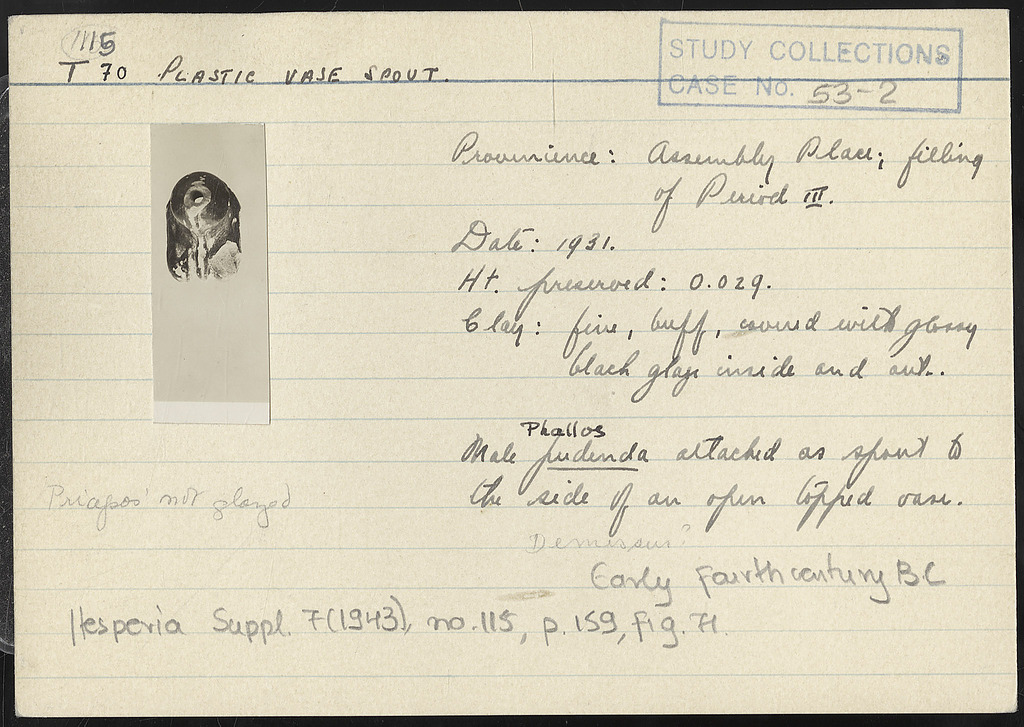 1115
T 70 PLASTIC VASE SPOUT.
STUDY COLLECTIONS
CASE No. 53-2
Provenience: Assembly Place; filling
of Period III.
Date: 1931.
Ht. preserved: 0.029.
Clay: fine, buff, covered with glossy
black glaze inside and out.
Phallos
Male pudenda attached as spout to
the side of an open topped vase.
'Priapos' not glazed
Demissus?
Early fourth century BC
Hesperia Suppl. 7(1943), no.115, p.159, fig.71.